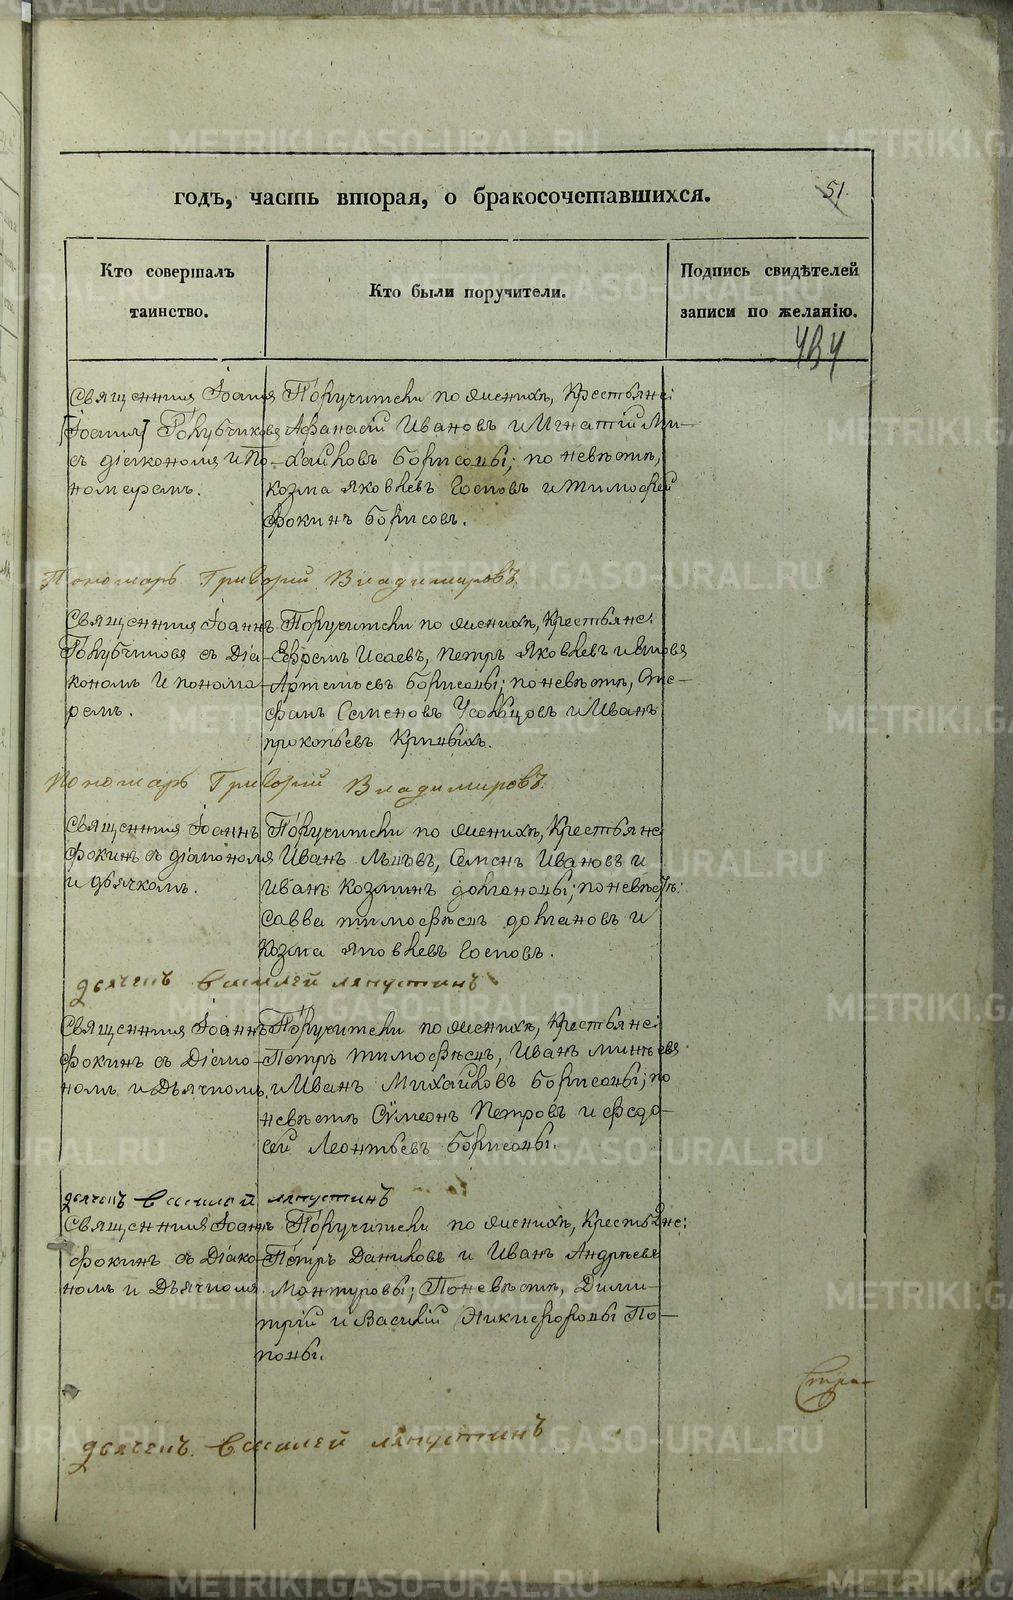 годъ, часть вторая, о бракосочетавшихся.
51
Кто совершалъ
таинство.
Кто были поручители.
Подпись свидѣтелей
записи по желанію.
434
Священникъ Іоаннъ
Голубчиковъ
съ діакономъ и По-
номаремъ.
Поручители по женихѣ, Крестьяне:
Афанасій Ивановъ и Игнатій Ми-
хайловъ Борисовы; по невѣстѣ,
Козма Яковлевъ Госповъ и Тимофей
Фокинъ Борисовъ.
Пономарь Григорій Владимировъ
Священникъ Іоаннъ
Голубчиковъ съ Діа-
кономъ и понома-
ремъ.
Поручители по женихѣ, Крестьяне:
Ефремъ Исаевъ, Петръ Яковлевъ и
Артемьевъ Борисовы; по невѣстѣ, Сте-
фанъ Семеновъ Усольцовъ и Иванъ
прокопьевъ Кривыхъ.
Пономарь Григорій Владимировъ
Священникъ Іоаннъ
Фокинъ съ діакономъ
и дьячкомъ.
Поручители по женихѣ, Крестьяне
Иванъ Львовъ, Семенъ Ивановъ и
Иванъ Козминъ долгановы; по невѣстѣ:
Савва тимофѣевъ долгановъ и
Козма яковлевъ Госповъ.
дьячекъ Василей ляпустинъ
Священникъ Іоаннъ
Фокинъ съ Діако-
номъ и Дьячкомъ.
Поручители по женихѣ, Крестьяне:
Петръ тимофѣевъ, Иванъ
и Иванъ Михайловъ Борисовы; по
невѣстѣ Сѵмеонъ Петровъ и Федо-
сей Леонтьевъ Борисовы.
дьячекъ Василей ляпустинъ
Священникъ Іоаннъ
Фокинъ съ Діако-
номъ и Дьячкомъ.
Поручители по женихѣ, Крестьяне:
Петръ Даниловъ и Иванъ Андрѣевъ
Мантуровы; По невѣстѣ, Дими-
трій и Василій Никифоровы По-
повы.
дьячекъ Василей ляпустинъ
METRIKI.GASO-URAL.RU